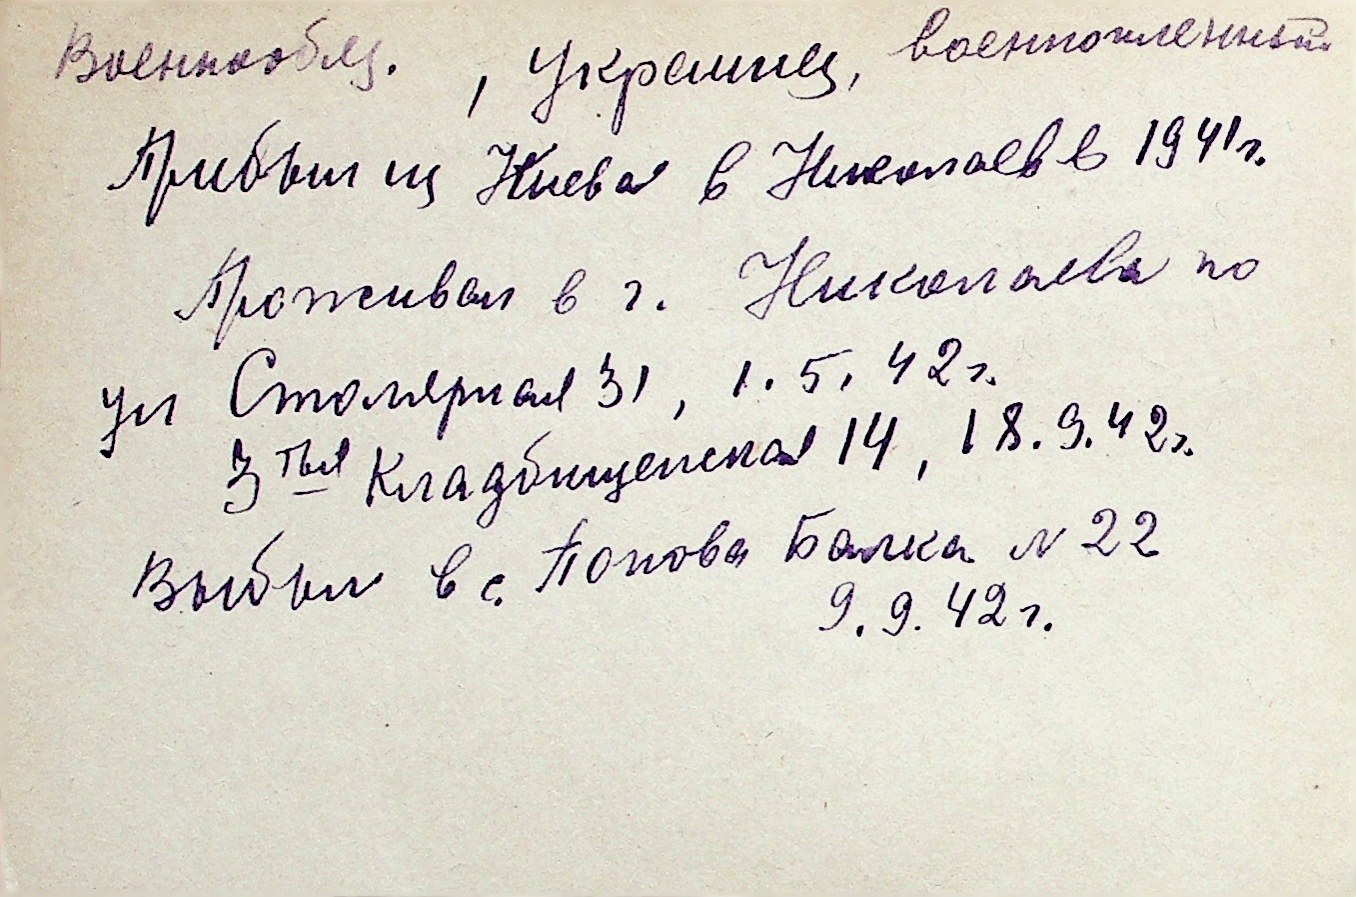 Военнообяз. , украинец, военнопленный
Прибыл из Киева в Николаев в 1941 г.
Проживал в г. Николаева по
ул Столярная 31, 1.5.42 г.
3тья Кладбищенская 14, 18.9.42 г.
Выбыл в с. Попова Балка № 22
9.9.42 г.